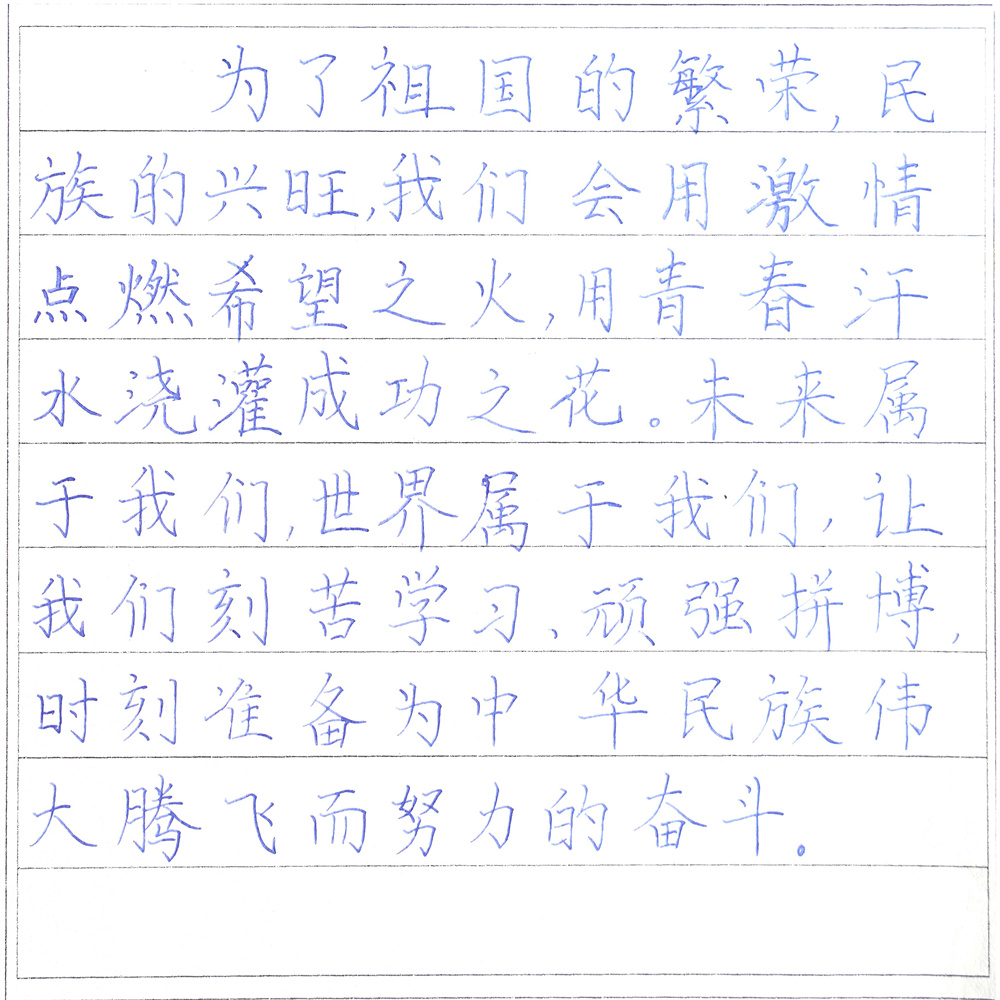 为了祖国的繁荣,民
族的兴旺,我们会用激情
点燃希望之火,用青春汗
水浇灌成功之花。未来属
于我们,世界属于我们,让
我们刻苦学习、顽强拼博,
时刻准备为中华民族伟
大腾飞而努力的奋斗。